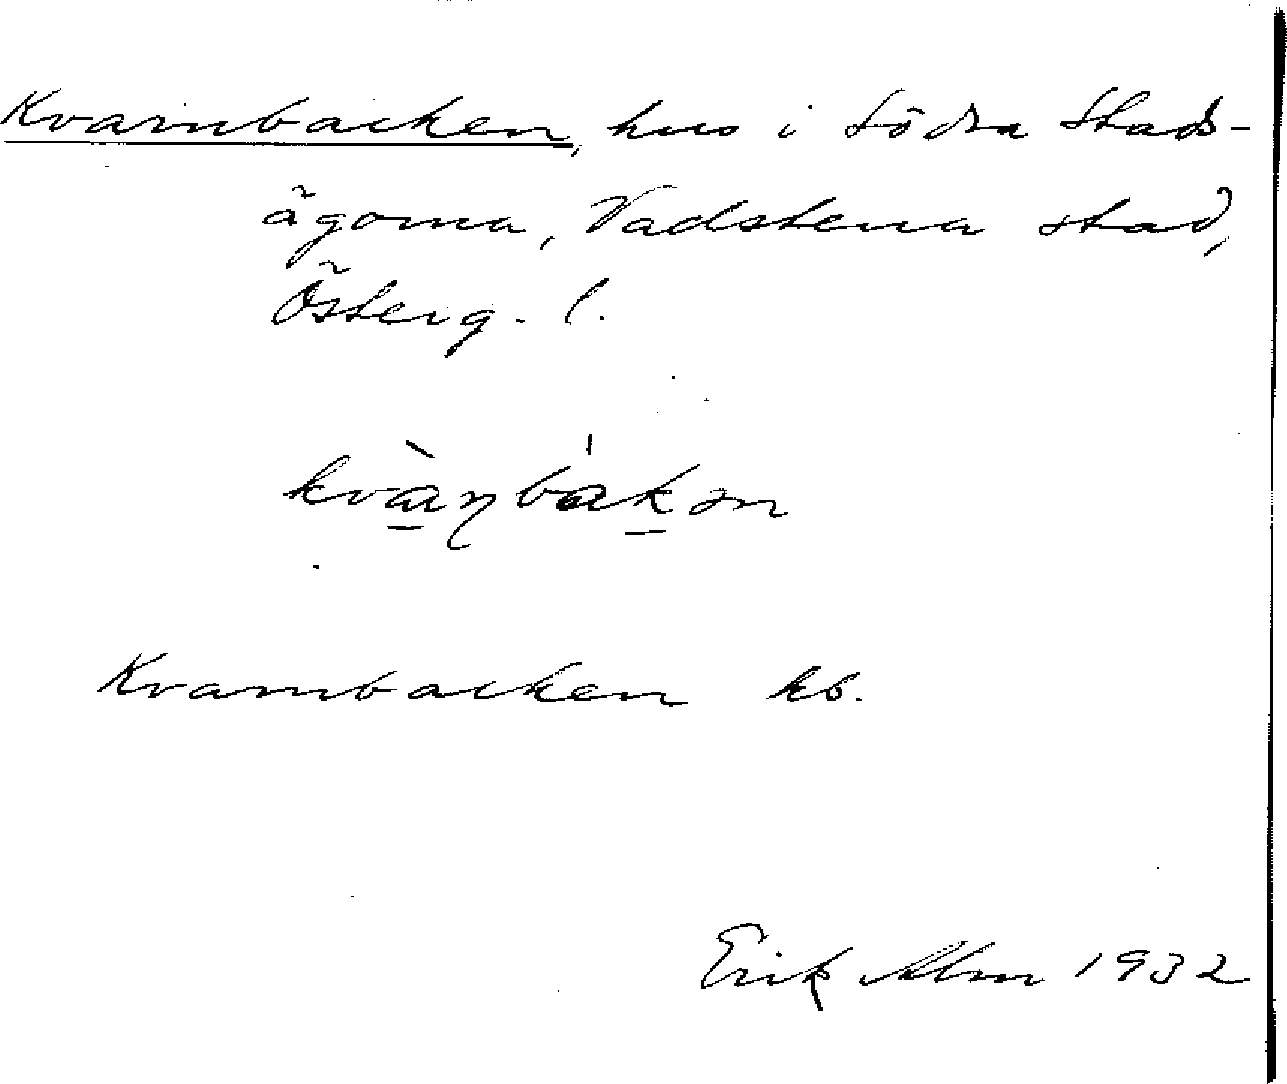 Kvarnbacken, hus i Södra Stads-
ägorna, Vadstena stad,
Österg. l.
kvàɳbákən
Kvarnbacken kb.
Erik Alm 1932